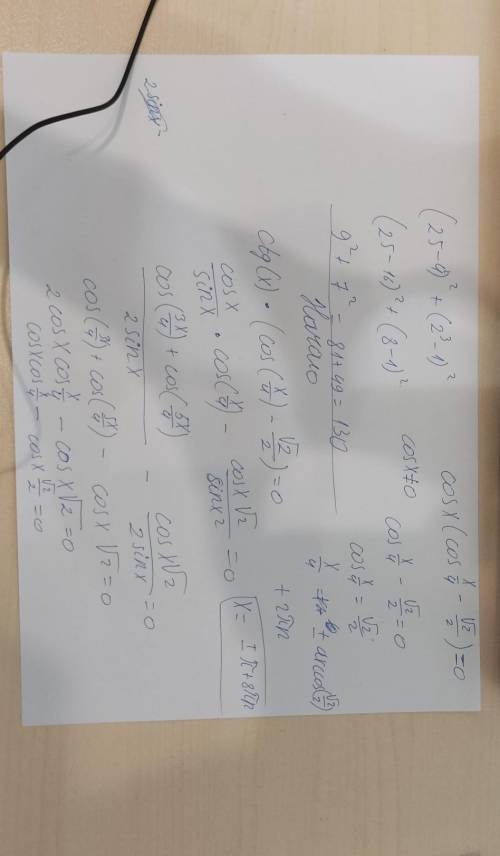 (25-9)² + (2³-1)²
(25-16)² + (8-1)²
9² + 7² = 81+49 = 130
Начало
ctg(x) · (cos(x/4) - √2/2) = 0
cosx/sinx · cos(x/4) - cosx√2/sinx2 = 0
(cos(3x/4) + cos(5x/4))/2sinx - cosx√2/2sinx = 0
cos(3x/4) + cos(5x/4) - cosx√2 = 0
2cosx cos x/4 - cosx√2 = 0
cosx cos x/4 - cosx √2/2 = 0
cosx(cos x/4 - √2/2) = 0
cosx≠0 cos x/4 - √2/2 = 0
cos x/4 = √2/2
x/4 = + arccos(√2/2)
+ 2πn
x = ±π+8πn
2sinx